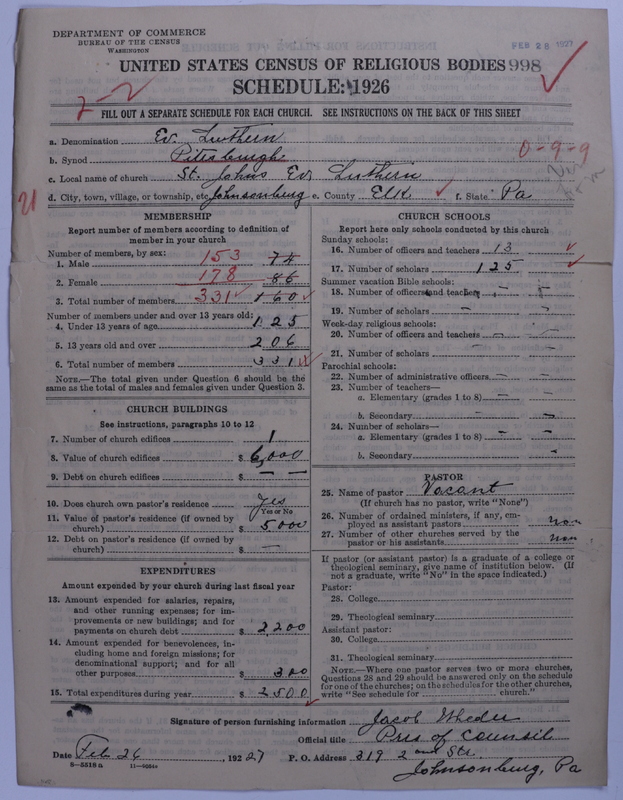 DEPARTMENT OF COMMERCE
BUREAU OF THE CENSUS
WASHINGTON
FEB 28 1927
UNITED STATES CENSUS OF RELIGIOUS BODIES 998
SCHEDULE: 1926
2-2
FILL OUT A SEPARATE SCHEDULE FOR EACH CHURCH. SEE INSTRUCTIONS ON THE BACK OF THIS SHEET
a. Denomination Ev. Luthern
b. Synod Pittsburgh
0-9-9
c. Local name of church St. Johns Ev. Luthern
d. City, town, village, or township, etc. Johnsonburg e. County Elk f. State Pa
21
MEMBERSHIP
Report number of members according to definition of
member in your church
Number of members, by sex:
1. Male 153 74
2. Female 178 86
3. Total number of members 331 160
Number of members under and over 13 years old:
4. Under 13 years of age 125
5. 13 years old and over 206
6. Total number of members 331
NOTE.—The total given under Question 6 should be the
same as the total of males and females given under Question 3.
CHURCH BUILDINGS
See instructions, paragraphs 10 to 12
7. Number of church edifices 1
8. Value of church edifices $ 6,000
9. Debt on church edifices $ — —
10. Does church own pastor's residence Yes
Yes or No
11. Value of pastor's residence (if owned by
church) $ 5000
12. Debt on pastor's residence (if owned by
church) $ —
EXPENDITURES
Amount expended by your church during last fiscal year
13. Amount expended for salaries, repairs,
and other running expenses; for im-
provements or new buildings; and for
payments on church debt $ 2,200
14. Amount expended for benevolences, in-
cluding home and foreign missions; for
denominational support; and for all
other purposes $ 300
15. Total expenditures during year $ 2500
CHURCH SCHOOLS
Report here only schools conducted by this church
Sunday schools:
16. Number of officers and teachers 13
17. Number of scholars 125
Summer vacation Bible schools:
18. Number of officers and teachers —
19. Number of scholars — —
Week-day religious schools:
20. Number of officers and teachers —
21. Number of scholars — —
Parochial schools:
22. Number of administrative officers — —
23. Number of teachers—
a. Elementary (grades 1 to 8) — —
b. Secondary — —
24. Number of scholars—
a. Elementary (grades 1 to 8) — —
b. Secondary — —
PASTOR
25. Name of pastor Vacant
(If church has no pastor, write "None")
26. Number of ordained ministers, if any, em-
ployed as assistant pastors non
27. Number of other churches served by the
pastor or his assistants non
If pastor (or assistant pastor) is a graduate of a college or
theological seminary, give name of institution below. (If
not a graduate, write "No" in the space indicated.)
Pastor:
28. College
29. Theological seminary
Assistant pastor:
30. College
31. Theological seminary
NOTE.—Where one pastor serves two or more churches,
Questions 28 and 29 should be answered only on the schedule
for one of the churches; on the schedules for the other churches,
write "See schedule for church."
Signature of person furnishing information Jacob
Official title Pres of Counsil
Date Feb 26, 1927 P. O. Address 319 2 and Str.
8-5518 a
Johnsonburg, Pa